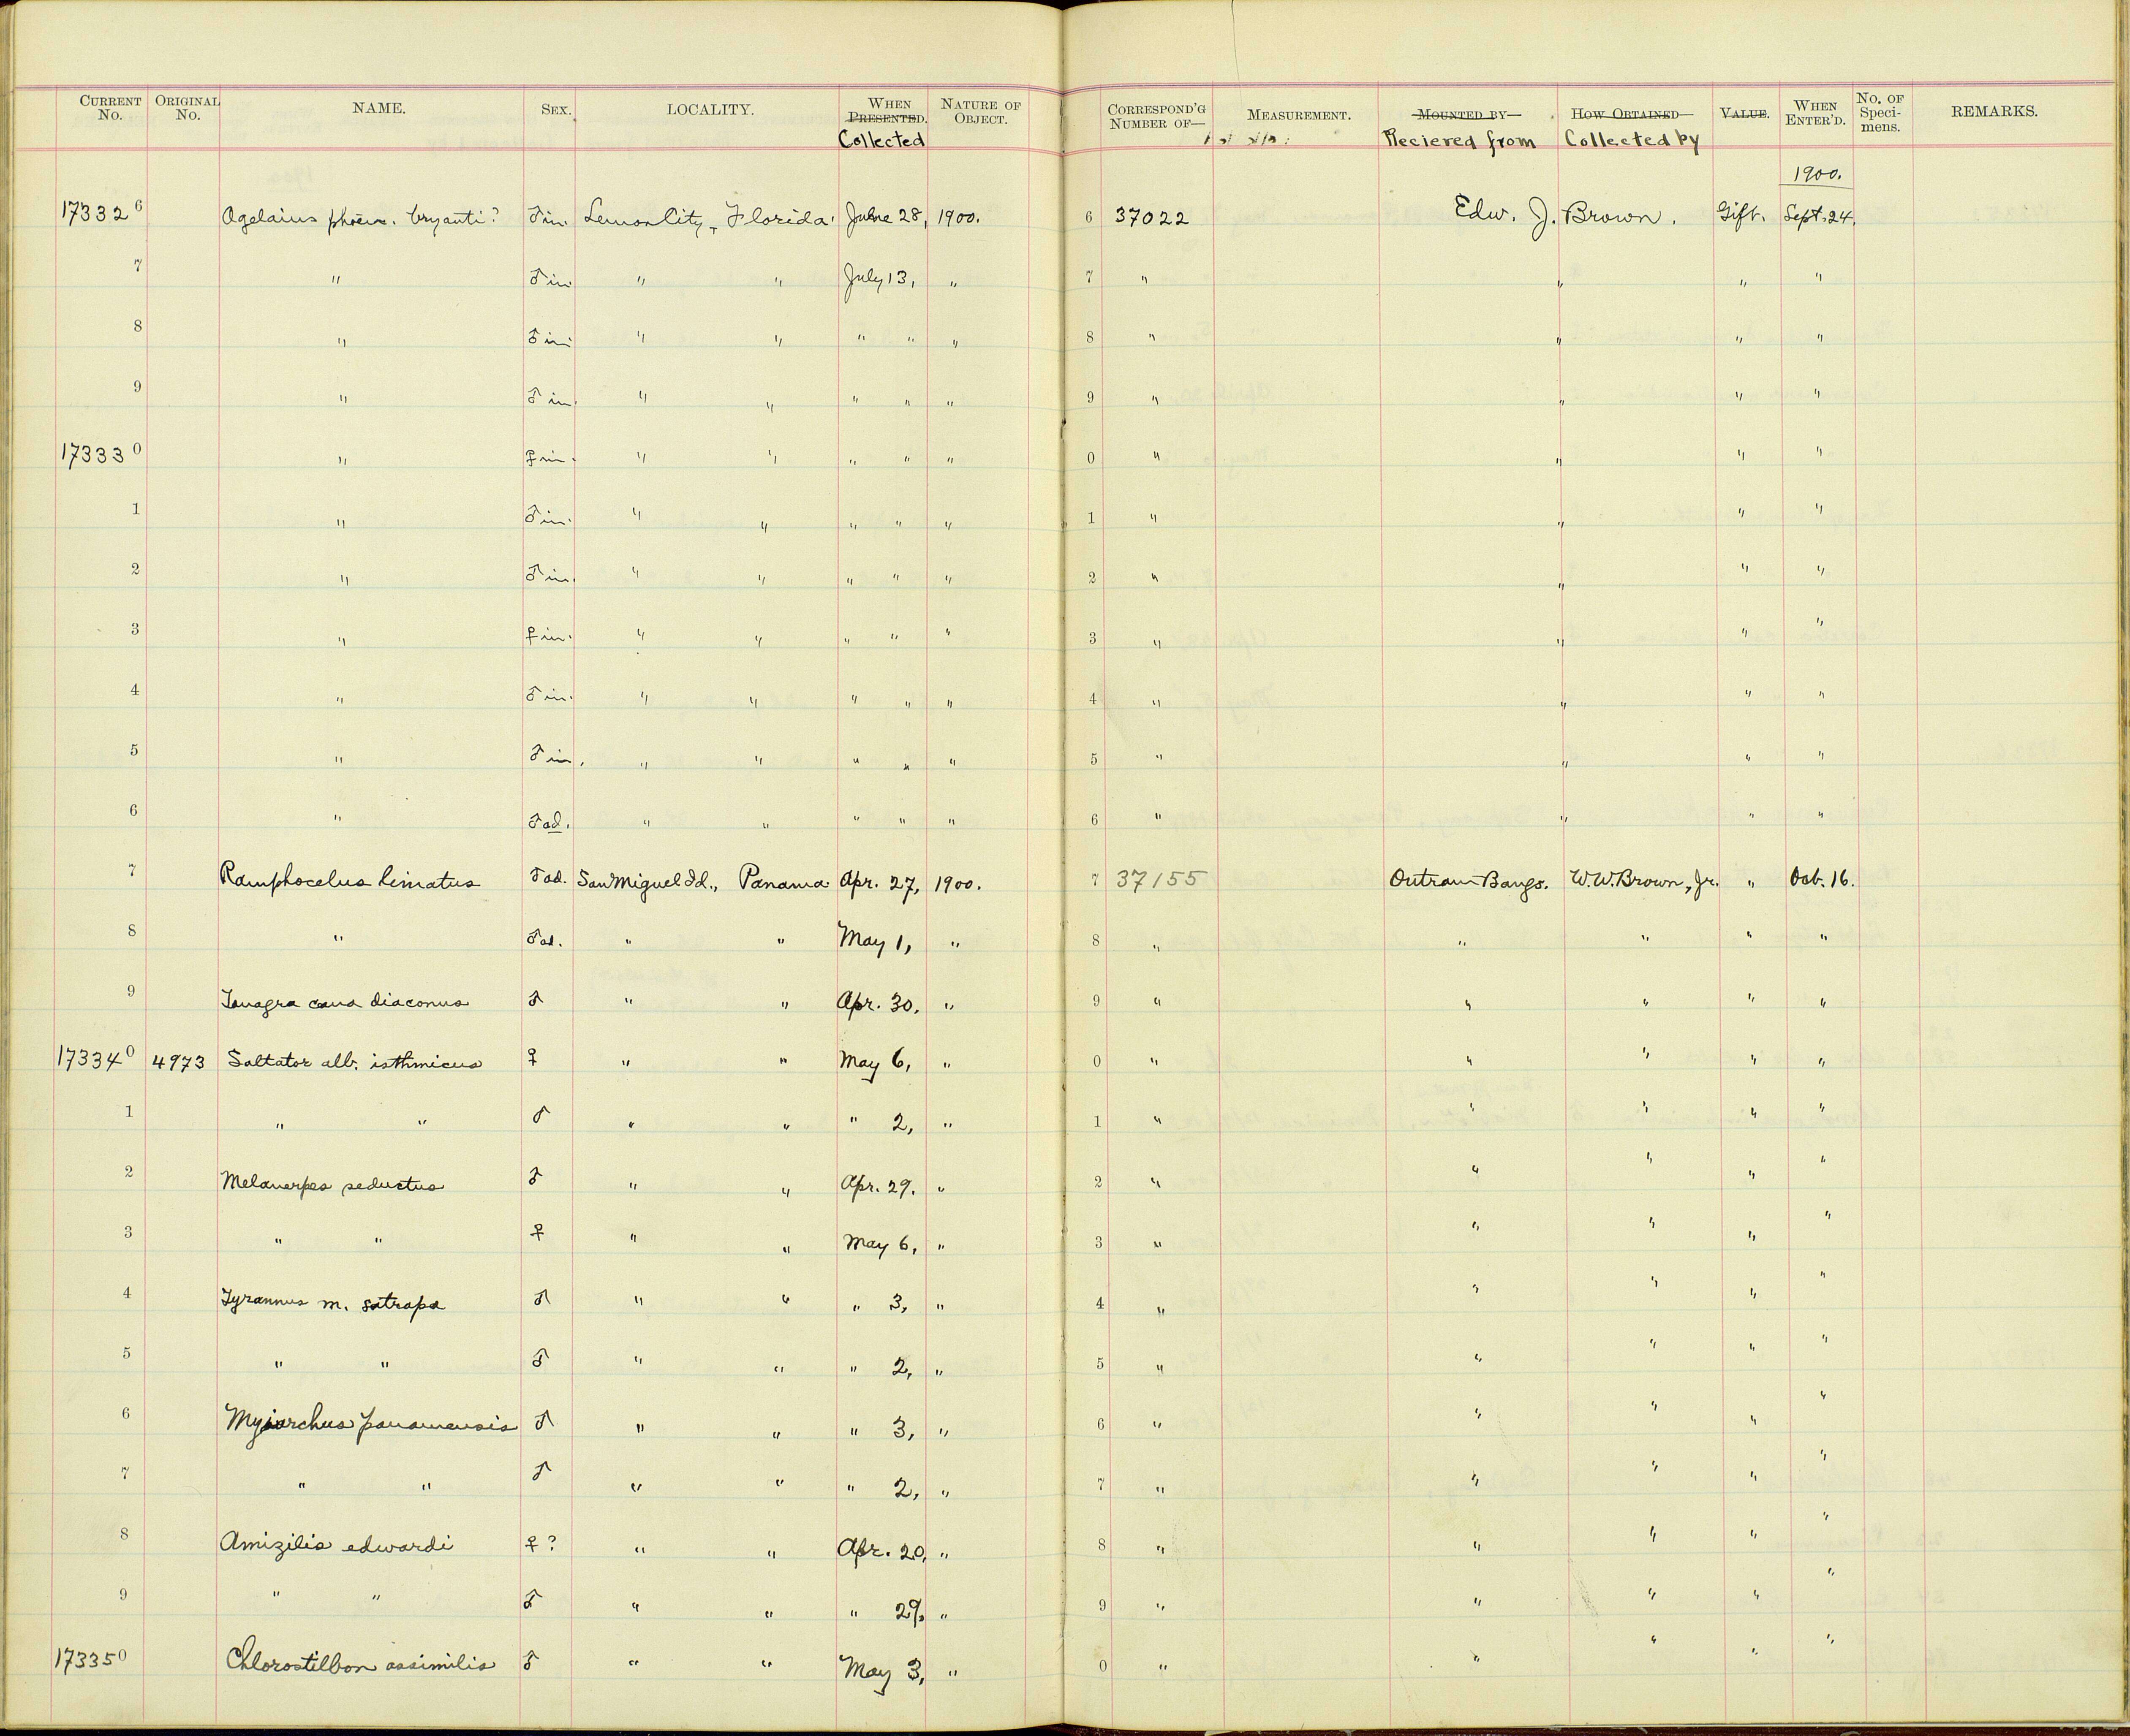 CURRENT No. ORIGINAL No. NAME. SEX. LOCALITY. WHEN PRESENTED. Collected NATURE OF OBJECT. CORRESPOND'G NUMBER OF— MEASUREMENT. MOUNTED BY— Reciered from HOW OBTAINED— Collected by VALUE. WHEN ENTER'D. No. OF Speci-mens. REMARKS.
1900.
173326 Agelaius phoen. bryanti? ♂ im. Lemon City, Florida. June 28, 1900. 6 37022 Edw. J. Brown. Gift. Sept. 24.
7 " ♂ im. " " July 13, " 7 " " " "
8 " ♂ im. " " " " " 8 " " " "
9 " ♂ im. " " " " " 9 " " " "
173330 " ♀ im. " " " " " 0 " " " "
1 " ♂ im. " " " " " 1 " " " "
2 " ♂ im. " " " " " 2 " " " "
3 " ♀ im. " " " " " 3 " " " "
4 " ♂ im. " " " " " 4 " " " "
5 " ♂ im. " " " " " 5 " " " "
6 " ♂ ad. " " " " " 6 " " " "
7 Ramphocelus limatus ♂ ad. San Miguel Id., Panama Apr. 27, 1900. 7 37155 Outram Bangs. W.W. Brown, Jr. " Oct. 16.
8 " ♂ ad. " " May 1, " 8 " " " " "
9 Tanagra cana diaconus ♂ " " Apr. 30. " 9 " " " " "
173340 4973 Saltator alb. isthmicus ♀ " " May 6, " 0 " " " " "
1 " " ♂ " " " 2, " 1 " " " " "
2 Melanerpes seductus ♂ " " Apr. 29. " 2 " " " " "
3 " " ♀ " " May 6, " 3 " " " " "
4 Tyrannus m. satrapa ♂ " " " 3, " 4 " " " " "
5 " " ♂ " " " 2, " 5 " " " " "
6 Myiarchus panamensis ♂ " " " 3, " 6 " " " " "
7 " " ♂ " " " 2, " 7 " " " " "
8 Amizilis edwardi ♀ ? " " Apr. 20, " 8 " " " " "
9 " " ♂ " " " 29. " 9 " " " " "
173350 Chlorostilbon assimilis ♂ " " May 3, " 0 " " " " "